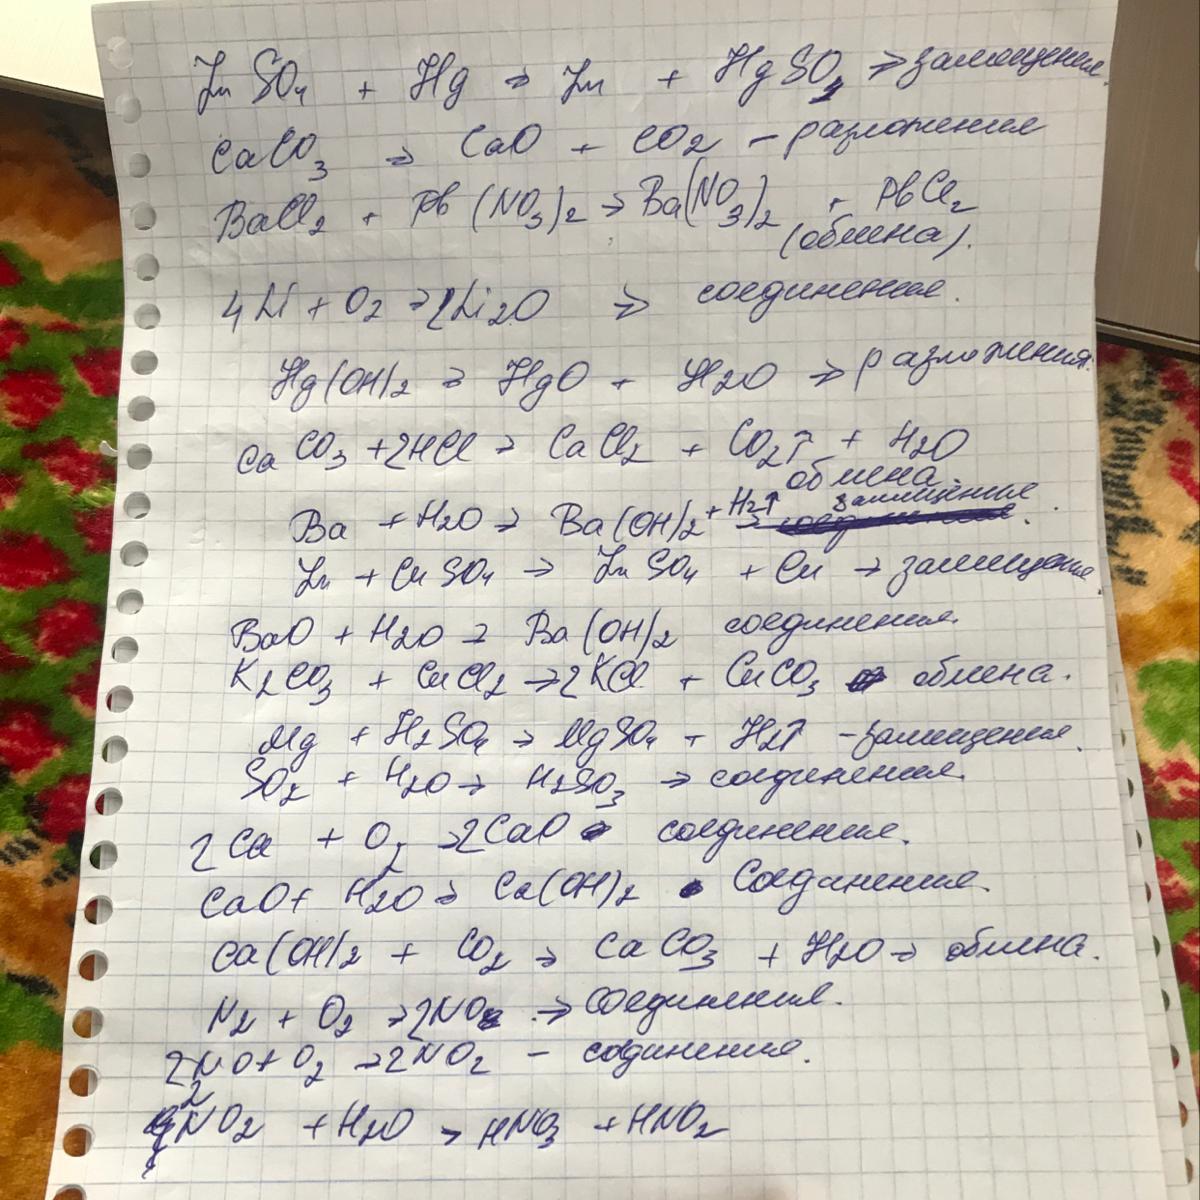 ZnSO4 + Hg → Zn + HgSO4 → замещения.
CaCO3 → CaO + CO2 - разложения
BaCl2 + Pb(NO3)2 → Ba(NO3)2 + PbCl2
(обмена).
4Li + O2 → 2Li2O → соединения.
Hg(OH)2 → HgO + H2O → разложения.
CaCO3 + 2HCl → CaCl2 + CO2↑ + H2O
обмена.
Ba + H2O → Ba(OH)2 + H2↑ → замещения.
Zn + CuSO4 → ZnSO4 + Cu → замещения
BaO + H2O → Ba(OH)2 соединения.
K2CO3 + CuCl2 → 2KCl + CuCO3 обмена.
Mg + H2SO4 → MgSO4 + H2↑ - замещения.
SO2 + H2O → H2SO3 → соединения.
2Ca + O2 → 2CaO соединения.
CaO + H2O → Ca(OH)2 Соединения.
Ca(OH)2 + CO2 → CaCO3 + H2O → обмена.
N2 + O2 → 2NO → Соединения.
2NO + O2 → 2NO2 - содинения.
2NO2 + H2O → HNO3 + HNO2